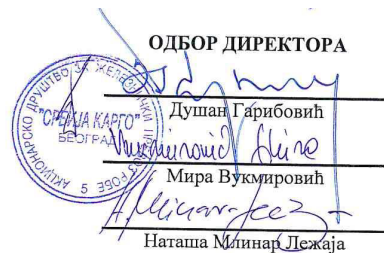 ОДБОР ДИРЕКТОРА
Душан Гарибовић
Мира Вукмировић
Наташа Млинар Лежаја
АКЦИОНАРСКО ДРУШТВО ЗА ЖЕЛЕЗНИЧКИ ПРЕВОЗ РОБЕ 5
"СРБИЈА КАРГО"
БЕОГРАД